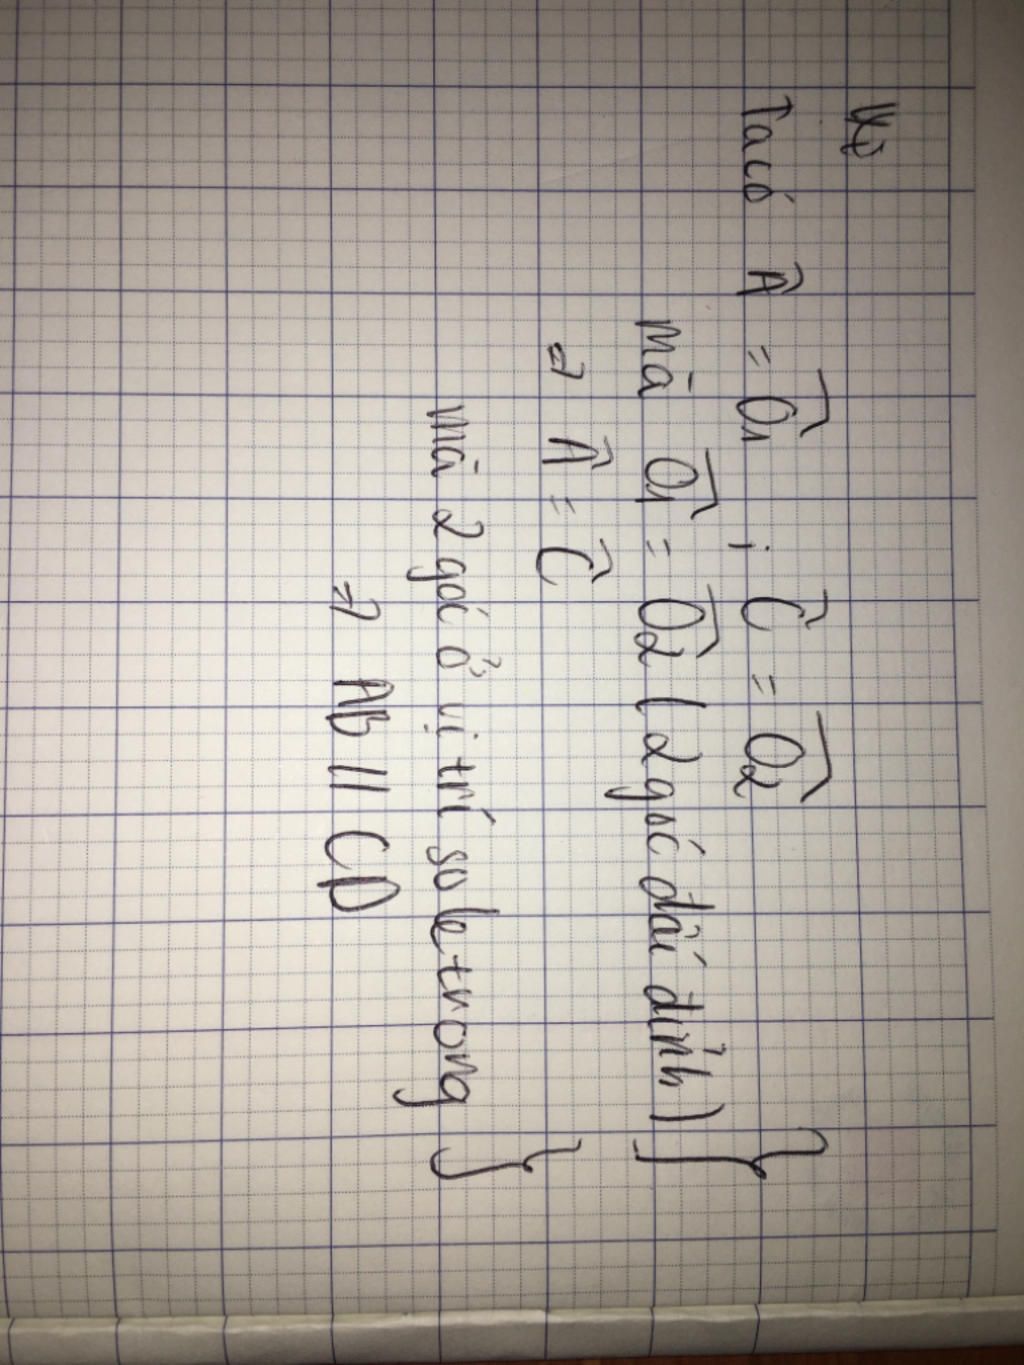 Ta có Â = Ô1 ; Ĉ = Ô2
mà Ô1 = Ô2 ( 2 góc đối đỉnh ) }
⇒ Â = Ĉ
mà 2 góc ở vị trí so le trong }
⇒ AB // CD